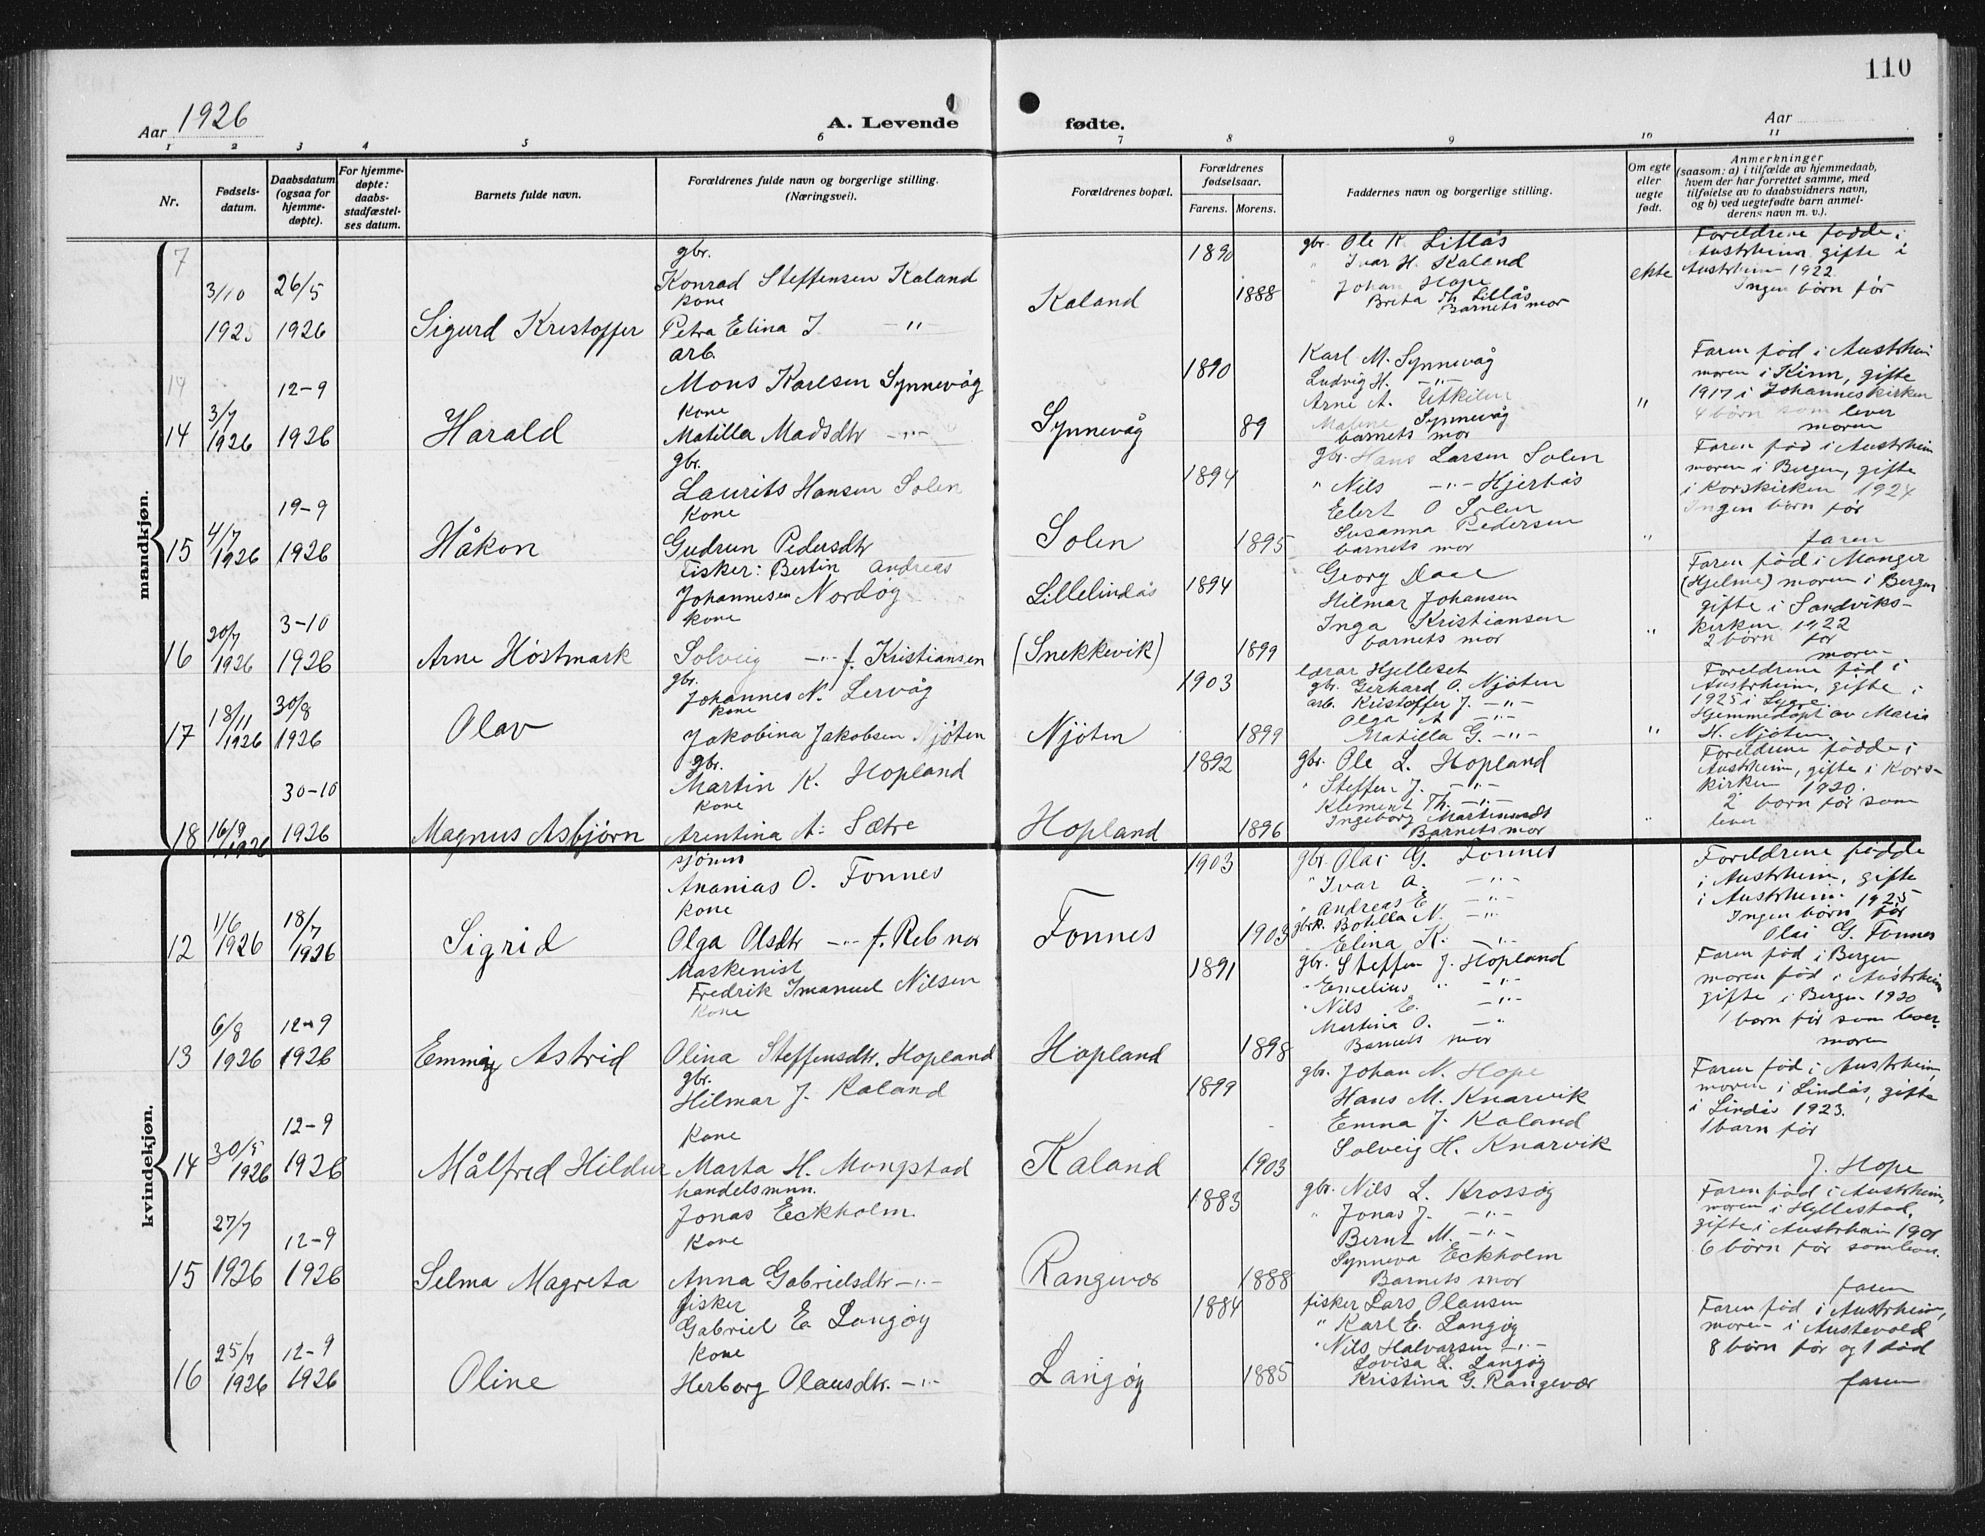 110
Aar 1926
A. Levende
fødte.
Aar
1 2 3 4 5 6 7 8 9 10 11
Nr.
Fødsels-
datum.
Daabsdatum
(ogsaa for
hjemme-
døpte).
For hjemme-
døpte:
daabs-
stadfæstel-
ses datum.
Barnets fulde navn.
Forældrenes fulde navn og borgerlige stilling.
(Næringsvei).
Forældrenes bopæl.
Forældrenes
fødselsaar.
Farens. Morens.
Faddernes navn og borgerlige stilling.
Om egte
eller
uegte
født.
Anmerkninger
(saasom: a) i tilfælde av hjemmedaab,
hvem der har forrettet samme, med
tilføielse av to daabsvidners navn,
og b) ved uegtefødte barn anmel-
derens navn m. v.).
mandkjøn.
7
3/10
1925
26/5
1926
Sigurd Kristoffer
gbr.
Konrad Steffensen Kaland
kone
Petra Elina J. —"—
Kaland
1890
1888
gbr. Ole K. Lillås
" Ivar H. Kaland
" Johan Hope
Breta Th. Lillås
Barnets mor
ekte
Foreldrene fødde i
Austrheim gifte i
Austrheim 1922
Ingen børn før
14
14
3/7
1926
12-9
1926
Harald
arb.
Mons Karlsen Synnevåg
kone
Matilla Madsdtr —"—
Synnevåg
1890
89
Karl M. Synnevåg
Ludvig H. —"—
Arne A. Utkilen
Malene Synnevåg
barnets mor
"
Faren fød i Austrheim
moren i Kinn, gifte
1917 i Johanneskirken
4 børn som lever
moren
15
4/7
1926
19-9
1926
Håkon
gbr.
Laurits Hansen Solen
kone
Gudrun Pedersdtr
Solen
1894
1895
gbr. Hans Larsen Solen
" Nils —"— Hjertås
Elert O Solen
Susanna Pedersen
barnets mor
"
Faren fød i Austrheim
moren i Bergen, gifte
i Korskirken 1924
Ingen børn før
faren
16
20/7
1926
3-10
1926
Arne Høstmark
Fisker: Bertin Andreas
Johannesen Nordøg
kone
Solveig —"— f. Kristiansen
Lillelindås
(Snekkevik)
1894
1899
Georg Daae
Hilmar Johansen
Inga Kristiansen
barnets mor
"
Faren fød i Manger
(Hjelme) moren i Bergen
gifte i Sandviks-
kirken 1922
2 børn før
moren
17
18/11
1926
30/8
1926
Olav
gbr.
Johannes N. Lervåg
kone
Jakobina Jakobsen Njøten
Njøten
1903
1899
lærar Hjelleset
gbr. Gerhard O. Njøten
arb. Kristoffer J. —"—
Olga A —"—
Matilla G. —"—
"
Foreldrene fød i
Austrheim, gifte i
1925 i Lygre.
Hjemmedøpt av Maria
H. Njøten.
18
16/9
1926
30-10
1926
Magnus Asbjørn
gbr.
Martin K. Hopland
kone
Arentina A: Sætre
Hopland
1892
1896
gbr. Ole L. Hopland
" Steffen J. —"—
Klement Th. —"—
Ingeborg Martinusdt
Barnets mor
"
Foreldrene fødde i
Austrheim, gifte i Kors-
kirken 1920.
2 børn før som
lever
kvindekjøn.
12
1/6
1926
18/7
1926
Sigrid
sjømn
Ananias O. Fonnes
kone
Olga Olsdtr —"— f. Rebnor
Fonnes
1903
1903
gbr. Olai G. Fonnes
" Ivar A. —"—
" Andreas E —"—
gbrk. Botilla N. —"—
Elina K. —"—
Foreldrene fødde
i Austrheim, gifte
i Austrheim 1925
Ingen børn før
Olai G. Fonnes
13
6/8
1926
12-9
1926
Emmy Astrid
Maskenist
Fredrik Imanuel Nilsen
kone
Olina Steffensdtr. Hopland
Hopland
1891
1898
gbr. Steffen J. Hopland
" Emelius " —"—
" Nils E. —"—
Martina O. —"—
Barnets mor
Faren fød i Bergen
moren fød i Austrheim
gifte i Bergen 1920
1 barn før som lever.
moren
14
30/5
1926
12-9
1926
Målfred Hildur
gbr.
Hilmar J. Kaland
kone
Marta H. Mongstad
Kaland
1899
1903
gbr. Johan N. Hope
Hans M. Knarvik
Emma J. Kaland
Solveig H. Knarvik
Faren fød i Austrheim,
moren i Lindås, gifte
i Lindås 1923.
1 barn før
J. Hope
15
27/7
1926
12-9
1926
Selma Magreta
handelsmnn.
Jonas Eckholm.
kone
Anna Gabrielsdtr —"—
Rangevær
1883
1888
gbr. Nils L. Krossøg
" Jonas J. —"—
Bernt M. —"—
Synneva Eckholm
Barnets mor
Faren fød i Austrheim,
moren i Hyllestad,
gifte i Austrheim 1908
6 børn før som lever.
faren
16
25/7
1926
12-9
1926
Oline
fisker
Gabriel E Langøy
kone
Herborg Olausdtr. —"—
Langøy
1884
1885
fisker Lars Olausen
" Karl E. Langøy
" Nils Halvarsen —"—
Lovisa L. Langøy
Kristina G. Rangevær
Faren fød i Austrheim,
moren i Austevold
8 børn før og 1 død
faren